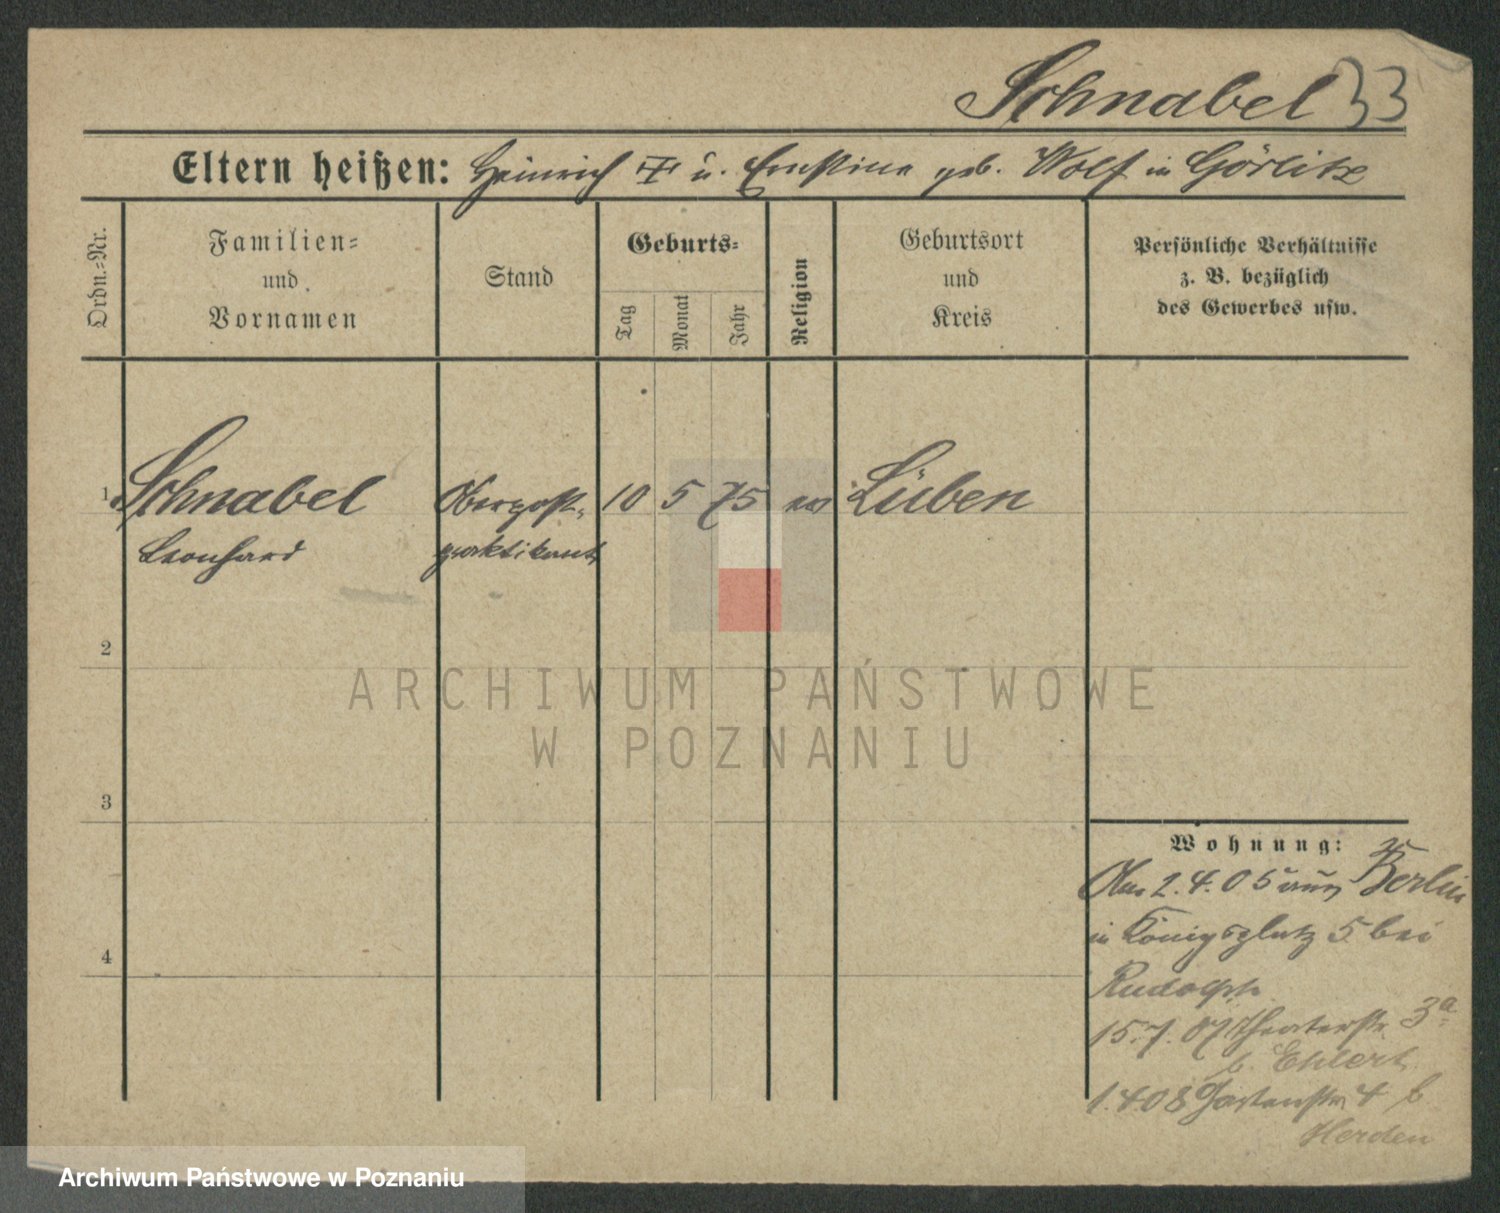 Schnabel 33
Eltern heißen: Heinrich † u. Ernstine geb. Wolf in Görlitz
Ordn.=Nr.
Familien=
und
Vornamen
Stand
Geburts=
Tag
Monat
Jahr
Religion
Geburtsort
und
Kreis
Persönliche Verhältnisse
z. B. bezüglich
des Gewerbes usw.
1 Schnabel Oberpost- 10 5 75 ev Lüben
Leonhard praktikant
2
3
4
Wohnung:
2.4.05 aus Berlin
in Königsplatz 5 bei
Rudolph
15.7.07 Theaterstr. 3a
b. Ehlert
1.4.08 Gartenstr. 4 b
Herden
ARCHIWUM PAŃSTWOWE
W POZNANIU
Archiwum Państwowe w Poznaniu